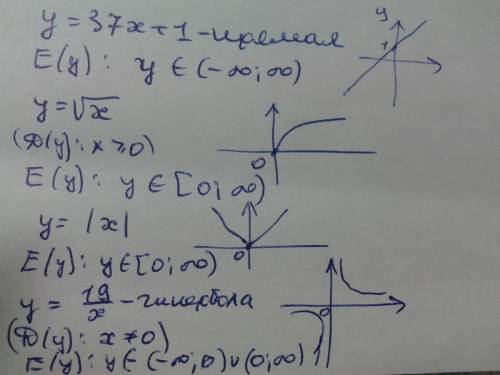 y = 37x + 1 - прямая
E(y): y ∈ (-∞; ∞)
y
1
y = √x
(D(y): x ≥ 0)
E(y): y ∈ [0; ∞)
0
y = |x|
E(y): y ∈ [0; ∞)
0
y = 19/x - гипербола
(D(y): x ≠ 0)
E(y): y ∈ (-∞, 0) ∪ (0; ∞)
0